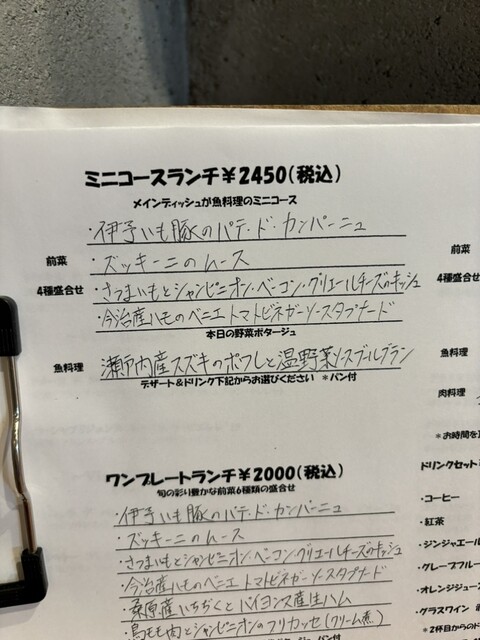 ミニコースランチ￥2450(税込)
メインディッシュが魚料理のミニコース
・伊予いも豚のパテ・ド・カンパーニュ
前菜
・ズッキーニのムース
4種盛合せ
・さつまいもとシャンピニオン・ベーコン・グリエールチーズのキッシュ
・今治産ハモのベニエ トマトビネガーソースタプナード
本日の野菜ポタージュ
魚料理
瀬戸内産スズキのポワレと温野菜ソースブールブラン
デザート＆ドリンク下記からお選びください ＊パン付
ワンプレートランチ￥2000(税込)
旬の彩り豊かな前菜6種類の盛合せ
・伊予いも豚のパテ・ド・カンパーニュ
・ズッキーニのムース
・さつまいもとシャンピニオン・ベーコン・グリエールチーズのキッシュ
・今治産ハモのベニエ トマトビネガーソースタプナード
・桑原産いちぢくとバイヨンヌ産生ハム
・鳥もも肉とシャンピニオンのフリカッセ(クリーム煮)
前菜
4種盛合せ
魚料理
肉料理
＊お時間を
ドリンクセット
・コーヒー
・紅茶
・ジンジャエール
・グレープフルー
・オレンジジュー
・グラスワイン
＊2杯目からのド